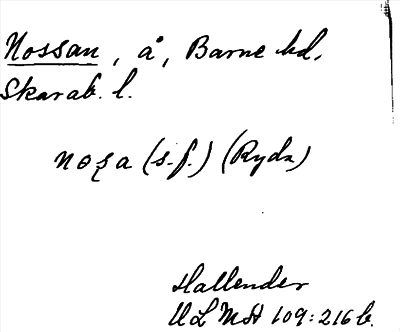 Nossan, å, Barne hd,
Skarab. l.
(s. f.) (Ryda)
Hallender
ULMA 109:216 b.